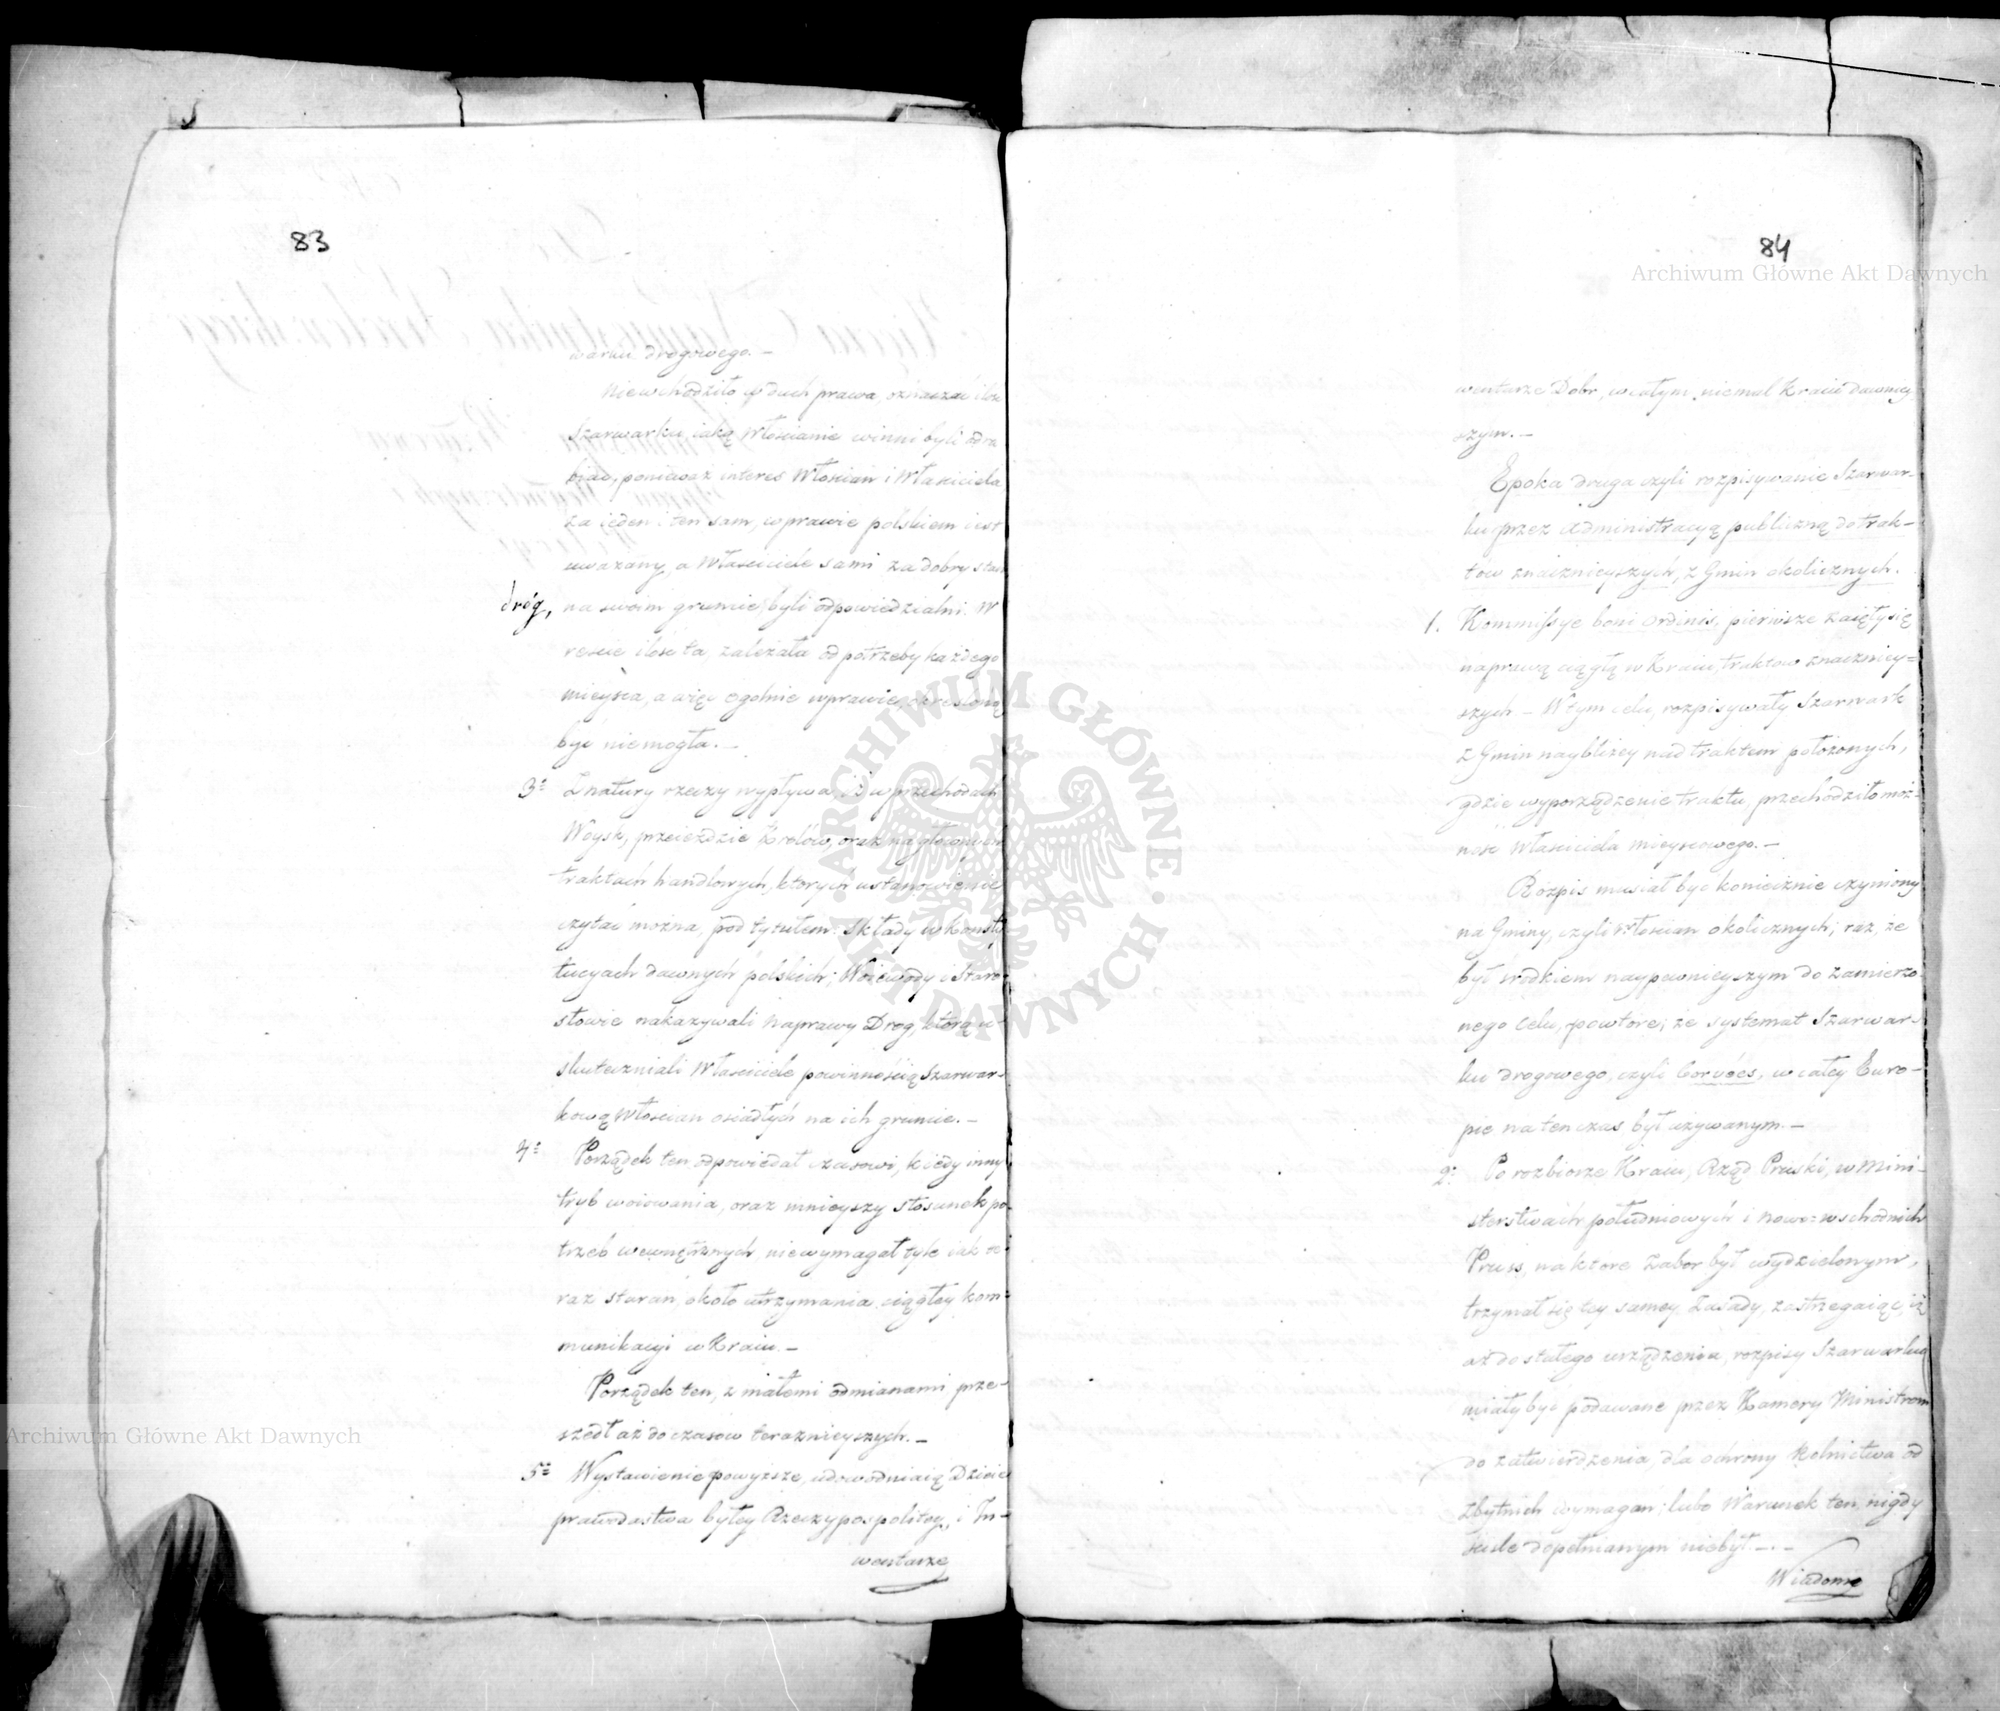 83
warku drogowego. –
Niewchodziło w duch prawa, oznaczać ilość
Szarwarku iaką Włościanie winni byli odra-
biać, ponieważ interes Włościan i Właściciela
za ieden i ten sam, w prawie polskiem iest
uważany, a Właściciele sami za dobry stan
dróg, na swoim gruncie byli odpowiedzialni. W
reście ilość ta, zależała od potrzeby każdego
mieysca, a więc ogolnie w prawie, określoną
być niemogła. –
3o Z natury rzeczy wypływa, iż w przechodach
Woysk, przeieździe Królów, oraz na głównych
traktach handlowych, ktorych ustanowienie
czytać można, pod tytułem: Składy w Konsty-
tucyach dawnych polskich; Woiewody i Staro-
stowie nakazywali naprawy Drog, którą u-
skuteczniali Właściciele powinnością Szarwar-
kową Włościan osiadłych na ich gruncie. –
4o Porządek ten odpowiedał czasowi, kiedy inny
tryb woiowania, oraz mnieyszy stosunek po-
trzeb wewnętrznych, niewymagał tyle iak te-
raz starań, około utrzymania ciągłey kom-
munikacyi w Kraiu. –
Porządek ten, z małemi odmianami prze-
szedł aż do czasow teraznieyszych. –
5o Wystawienie powyższe, udowodniaią Dzieie
prawodastwa byłey Rzeczypospolitey, i In-
wentarze
84
Archiwum Główne Akt Dawnych
wentarze Dobr, w całym niemal Kraiu dawniey-
szym. –
Epoka druga czyli rozpisywanie Szarwar-
ku przez Administracyą publiczną do trak-
tów znacznieyszych, z Gmin okolicznych.
1. Kommissye boni Ordinis, pierwsze zaięły się
naprawą ciągłą w Kraiu, traktow znaczniey-
szych. – W tym celu, rozpisywały Szarwark
z Gmin naybliżey nad traktem położonych,
gdzie wyporządzenie traktu, przechodziło moż-
ność Właściciela mieyscowego. –
Rozpis musiał być koniecznie czyniony
na Gminy, czyli Włościan okolicznych; raz, że
był środkiem naypewnieyszym do zamierzo-
nego celu, powtóre; że systemat Szarwar-
ku drogowego, czyli Corvées, w całey Euro-
pie na ten czas był używanym. –
2. Po rozbiorze Kraiu, Rząd Pruski, w Mini-
sterstwach południowych i nowo=wschodnich
Pruss, na ktore Zabor był wydzielonym,
trzymał się tey samey Zasady, zastrzegaiąc, iż
aż do stałego urządzenia, rozpisy Szarwarku
miały być podawane przez Kamery Ministrom
do zatwierdzenia dla ochrony Rolnictwa od
zbytnich wymagań; lubo Warunek ten, nigdy
ściśle dopełnianym niebył. –
Wiadomo
ARCHIWUM GŁÓWNE AKT DAWNYCH
Archiwum Główne Akt Dawnych